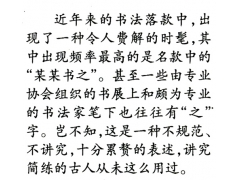 近年来的书法落款中,出
现了一种令人费解的时髦,其
中出现频率最高的是名款中的
“某某书之”。甚至一些由专业
协会组织的书展上和颇为专业
的书法家笔下也往往有“之”
字。岂不知,这是一种不规范、
不讲究,十分累赘的表述,讲究
简练的古人从未这么用过。